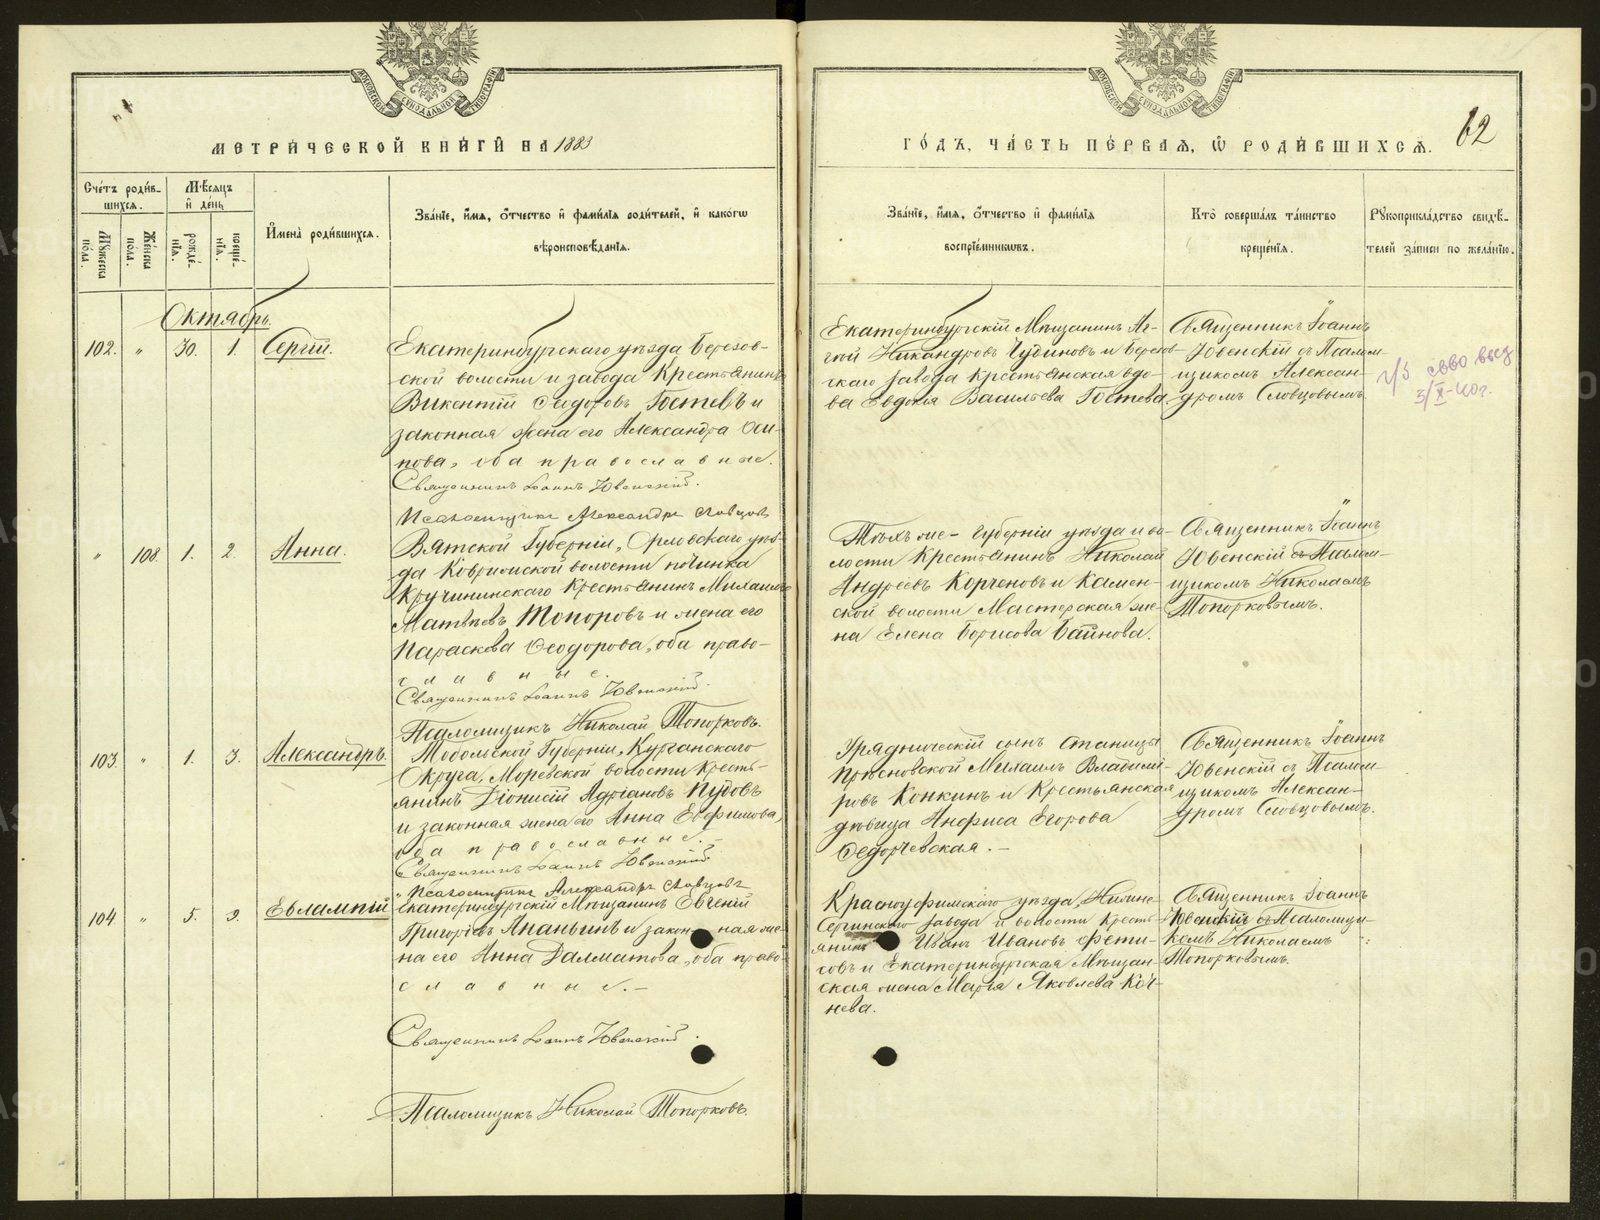 МЕТРИЧЕСКОЙ КНИГИ НА 1883
ГОДЪ, ЧАСТЬ ПЕРВАЯ, Ѡ РОДИВШИХСЯ.
62
Счетъ родив-
шихся.
Мужеска
пола.
Женска
пола.
Мѣсяцъ
и день
рожде-
нія.
креще-
нія.
Имена родившихся.
Званіе, имя, отчество и фамилія родителей, и какогѡ
вѣроисповѣданія.
Званіе, имя, отчество и фамилія
воспріемниковъ.
Кто совершалъ таинство
крещенія.
Рукоприкладство свидѣ-
телей записи по желанію.
Октябрь.
102. " 30. 1. Сергій.
Екатеринбургскаго уѣзда Березов-
ской волости и завода Крестьянинъ
Викентій Ѳеодоровъ Гостевъ и
законная жена его Александра Оси-
пова, оба православные.
Священникъ Іоаннъ Ювенскій.
Псаломщикъ Александръ Словцовъ
Екатеринбургскій Мѣщанинъ Аг-
гей Никандровъ Чудиновъ и Березов-
скаго завода Крестьянская вдо-
ва Евдокія Васильева Гостева
Священникъ Іоаннъ
Ювенскій съ Псалом-
щикомъ Алексан-
дромъ Словцовымъ.
" 108. 1. 2. Анна.
Вятской Губерніи, Орловскаго уѣз-
да Ковриминской волости починка
Кручининскаго Крестьянинъ Михаилъ
Матвѣевъ Топоровъ и жена его
Параскева Ѳеодорова, оба право-
славные.
Священникъ Іоаннъ Ювенскій.
Псаломщикъ Николай Топорковъ.
Тѣхъ же - Губерніи уѣзда и во-
лости Крестьянинъ Николай
Андреевъ Корченовъ и Камен-
ской волости Мастерская же-
на Елена Борисова Баинова.
Священникъ Іоаннъ
Ювенскій съ Псалом-
щикомъ Николаемъ
Топорковымъ.
103. " 1. 3. Александръ.
Тобольской Губерніи, Курганскаго
Округа, Моревской волости Кресть-
янинъ Діонисій Адріановъ Пудовъ
и законная жена его Анна Евфимова,
оба православные.-
Священникъ Іоаннъ Ювенскій.
Псаломщикъ Александръ Словцовъ
Урядническій сынъ станицы
Прѣсновской Михаилъ Владимі-
ровъ Конкинъ и Крестьянская
дѣвица Анфиса Егорова
Ѳедорчевская. -
Священникъ Іоаннъ
Ювенскій съ Псалом-
щикомъ Алексан-
дромъ Словцовымъ.
104 " 5. 9. Евлампій
Екатеринбургскій Мѣщанинъ Евгеній
Григорьевъ Ананьинъ и законная же-
на его Анна Далматова, оба право-
славные.-
Священникъ Іоаннъ Ювенскій.
Псаломщикъ Николай Топорковъ.
Красноуфимскаго уѣзда, Нижне-
Сергинскаго завода и волости Кресть-
янинъ Иванъ Ивановъ Фети-
совъ и Екатеринбургская Мѣщан-
ская жена Марія Яковлева Коч-
нева.
Священникъ Іоаннъ
Ювенскій съ Псаломщи-
комъ Николаемъ
Топорковымъ.